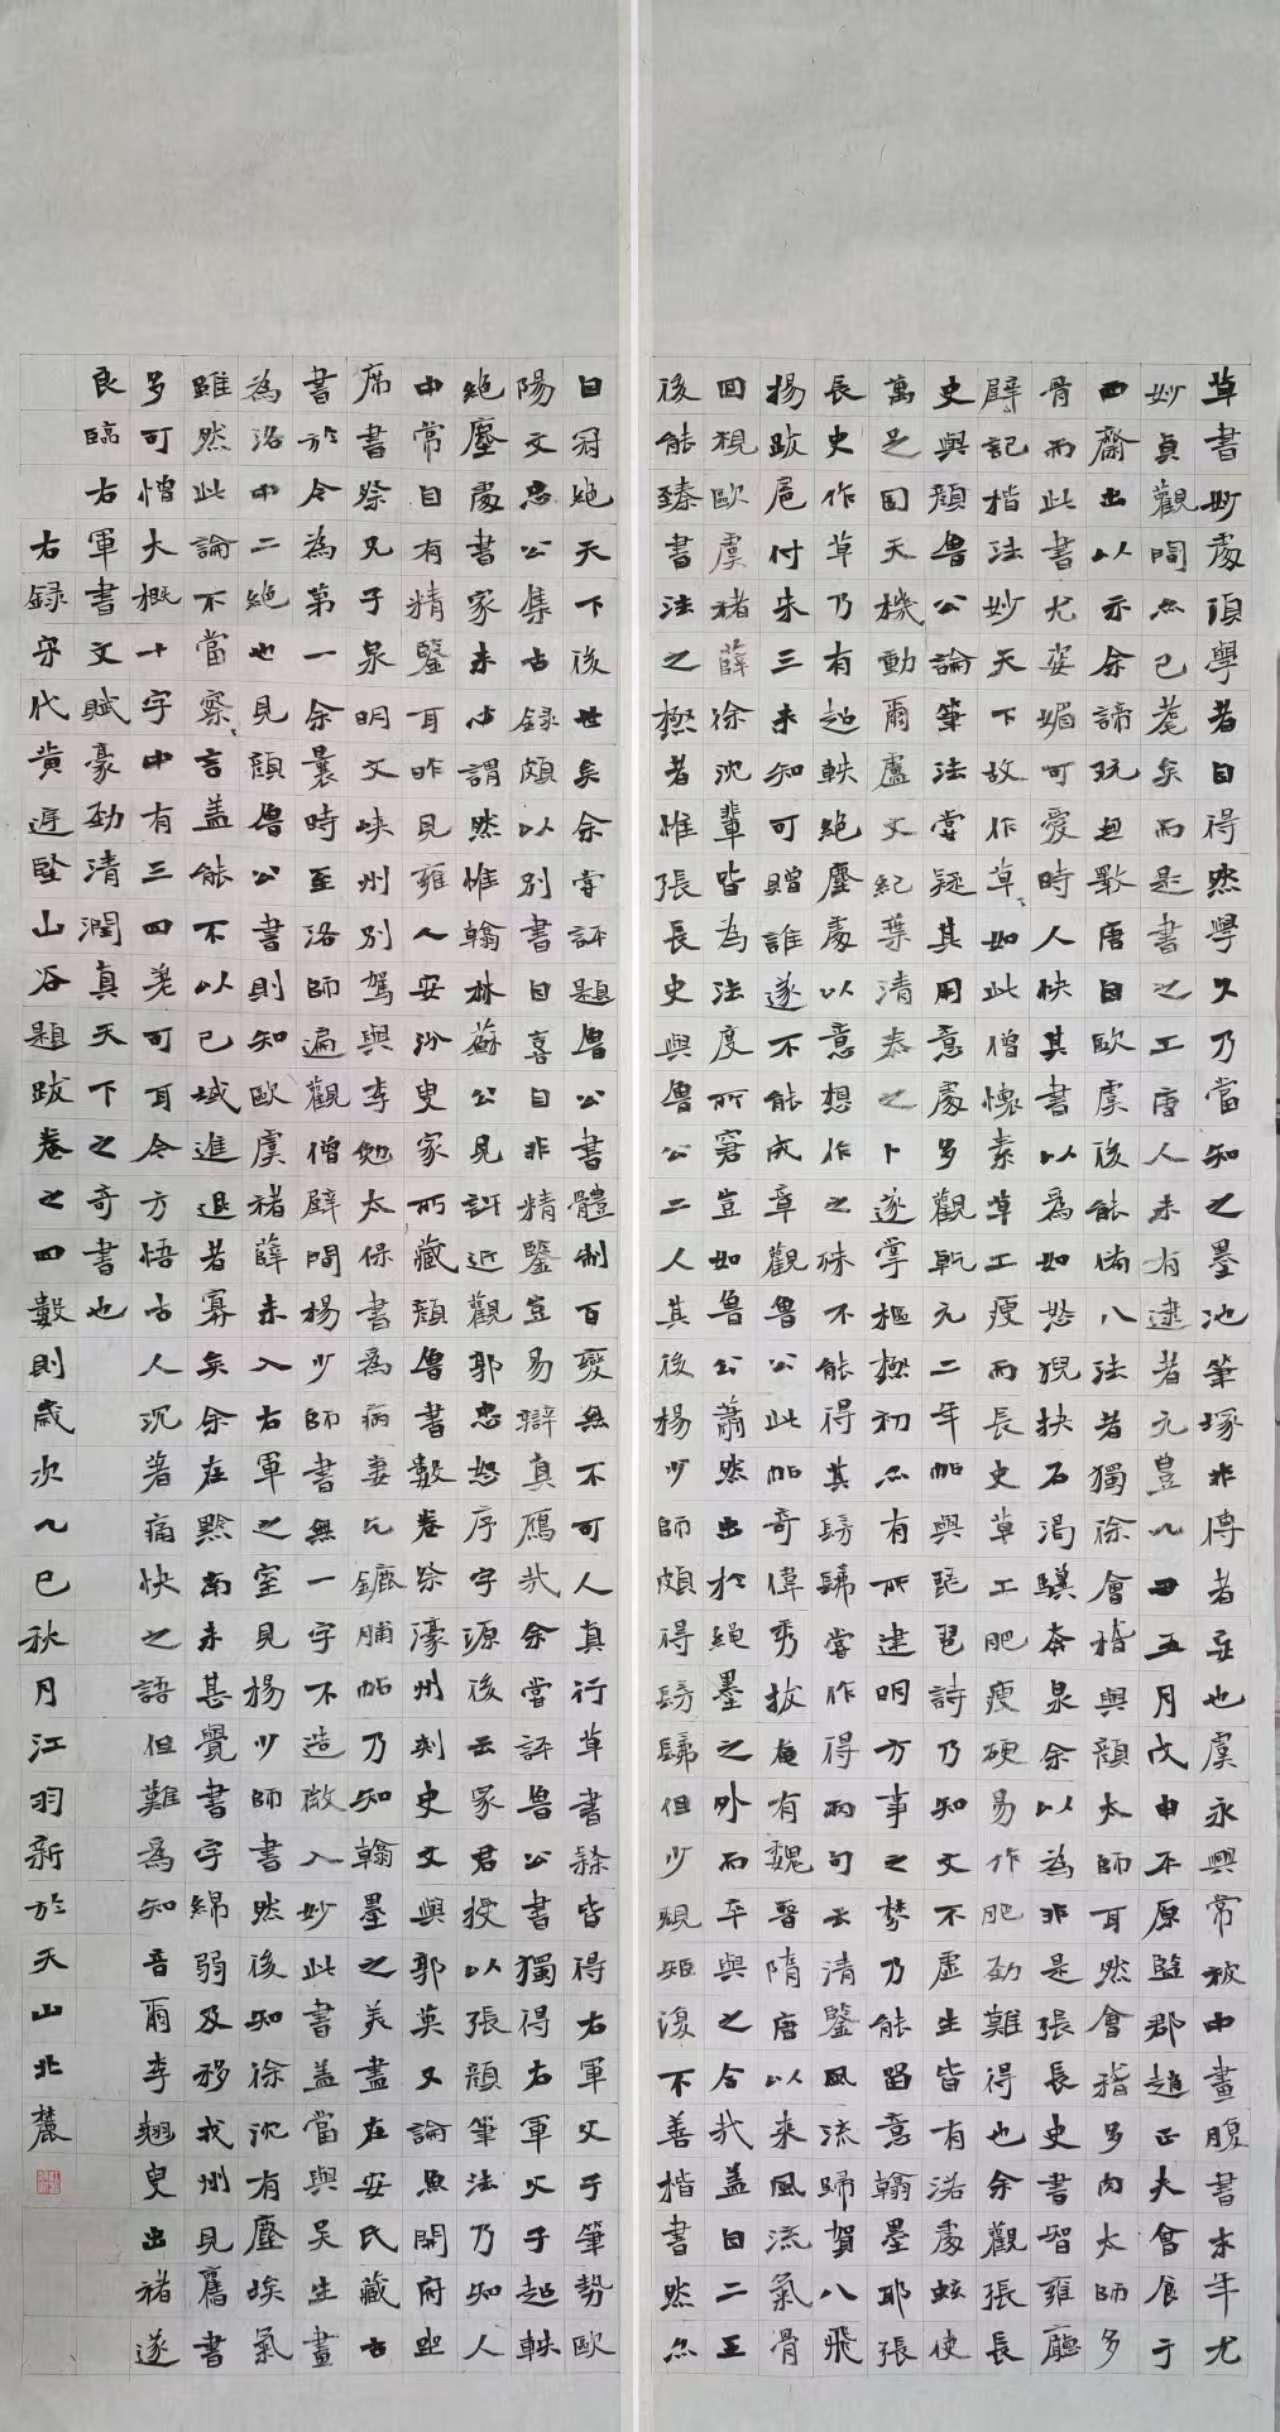 草書妙處須學者自得然學久乃當知之墨池筆塚非傳者妄也虞永興常被中畫腹書末年尤
妙貞觀間亦已耄矣而是書之工唐人未有逮者元豊八四五月戊申平原監郡趙正夫會食于
西齋出以示余諦玩無斁唐自歐虞後能備八法者獨徐會稽與顏太師耳然會稽多肉太師多
骨而此書尤姿媚可愛時人快其書以為如怒猊抉石渴驥奔泉余以為非是張長史書智雍廳
壁記楷法妙天下故作草草如此僧懷素草工瘦而長史草工肥瘦硬易作肥勁難得也余觀張長
史與顏魯公論筆法嘗疑其用意處多觀乾元二年帖與琵琶詩乃知文不虛生皆有活處蛟使
萬足固天機動爾盧文紀葉清泰之卜遂掌樞極初亦有所建明方事之棼乃能留意翰墨耶張
長史作草乃有超軼絕塵處以意想作之殊不能得其髣髴嘗作得兩句云清鑒風流歸賀八飛
揚跋扈付朱三未知可贈誰遂不能成章觀魯公此帖奇偉秀拔奄有魏晉隋唐以來風流氣骨
回視歐虞褚薛徐沈輩皆為法度所窘豈如魯公蕭然出於繩墨之外而卒與之合哉蓋自二王
後能臻書法之極者惟張長史與魯公二人其後楊少師頗得髣髴但少規矩復不善楷書然亦
自冠絕天下後世矣余嘗評題魯公書體制百變無不可人真行草書隸皆得右軍父子筆勢歐
陽文忠公集古錄頗以別書自喜自非精鑒豈易辯真贗哉余嘗評魯公書獨得右軍父子超軼
絕塵處書家未必謂然惟翰林蘇公見許近觀郭忠恕序字源後云冢君授以張顏筆法乃知人
中常自有精鑒耳昨見雍人安汾叟家所藏顏魯書數卷祭濠州刺史文與郭英乂論魚開府坐
席書祭兄子泉明文峽州別駕與李勉太保書為病妻乞鏕脯帖乃知翰墨之美盡在安氏藏古
書於今為第一余曩時至洛師遍觀僧壁間楊少師書無一字不造微入妙此書蓋當與吳生畫
為洛中二絕也見顏魯公書則知歐虞褚薛未入右軍之室見楊少師書然後知徐沈有塵埃氣
雖然此論不當察言蓋能不以己域進退者寡矣余在黔南未甚覺書字綿弱及移戎州見舊書
多可憎大概十字中有三四差可耳今方悟古人沉著痛快之語但難為知音爾李翹叟出褚遂
良臨右軍書文賦豪勁清潤真天下之奇書也
右録宋代黄庭堅山谷題跋卷之四數則歲次乙巳秋月江羽新於天山北麓